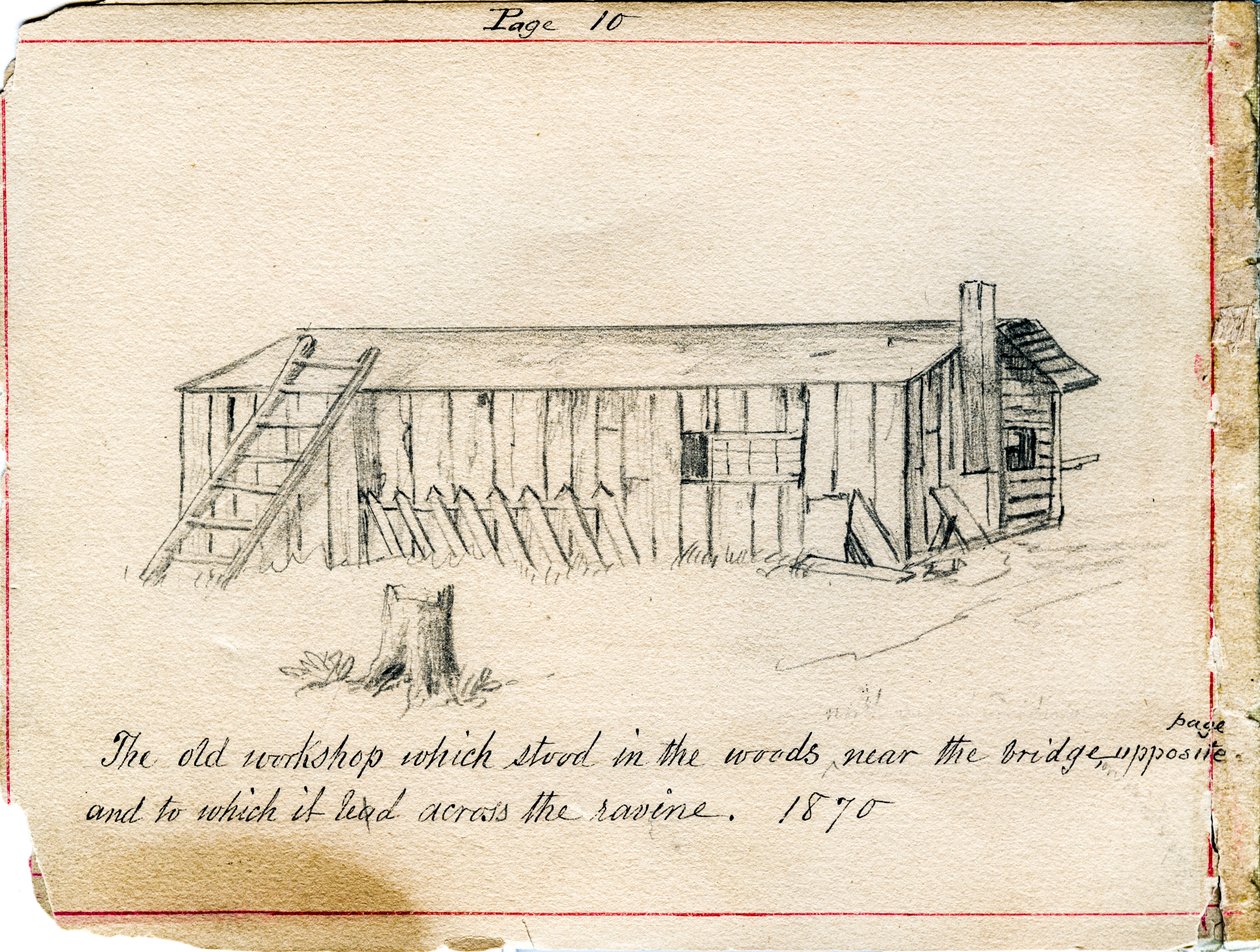 Page 10
The old workshop which stood in the woods near the bridge, opposite page
and to which it lead across the ravine. 1870